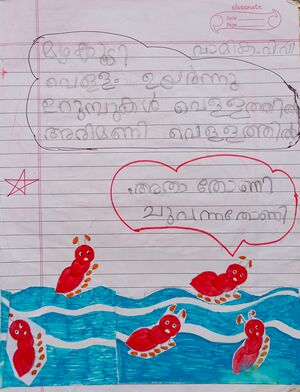 classmate
Date
Page
മഴക്കുട്ടി വാമിക.പി.വി
വെള്ളം ഉയർന്നു
ഉറുമ്പുകൾ വെള്ളത്തിൽ
അരിമണി വെള്ളത്തിൽ
അതാ തോണി
ചുവന്നതോണി